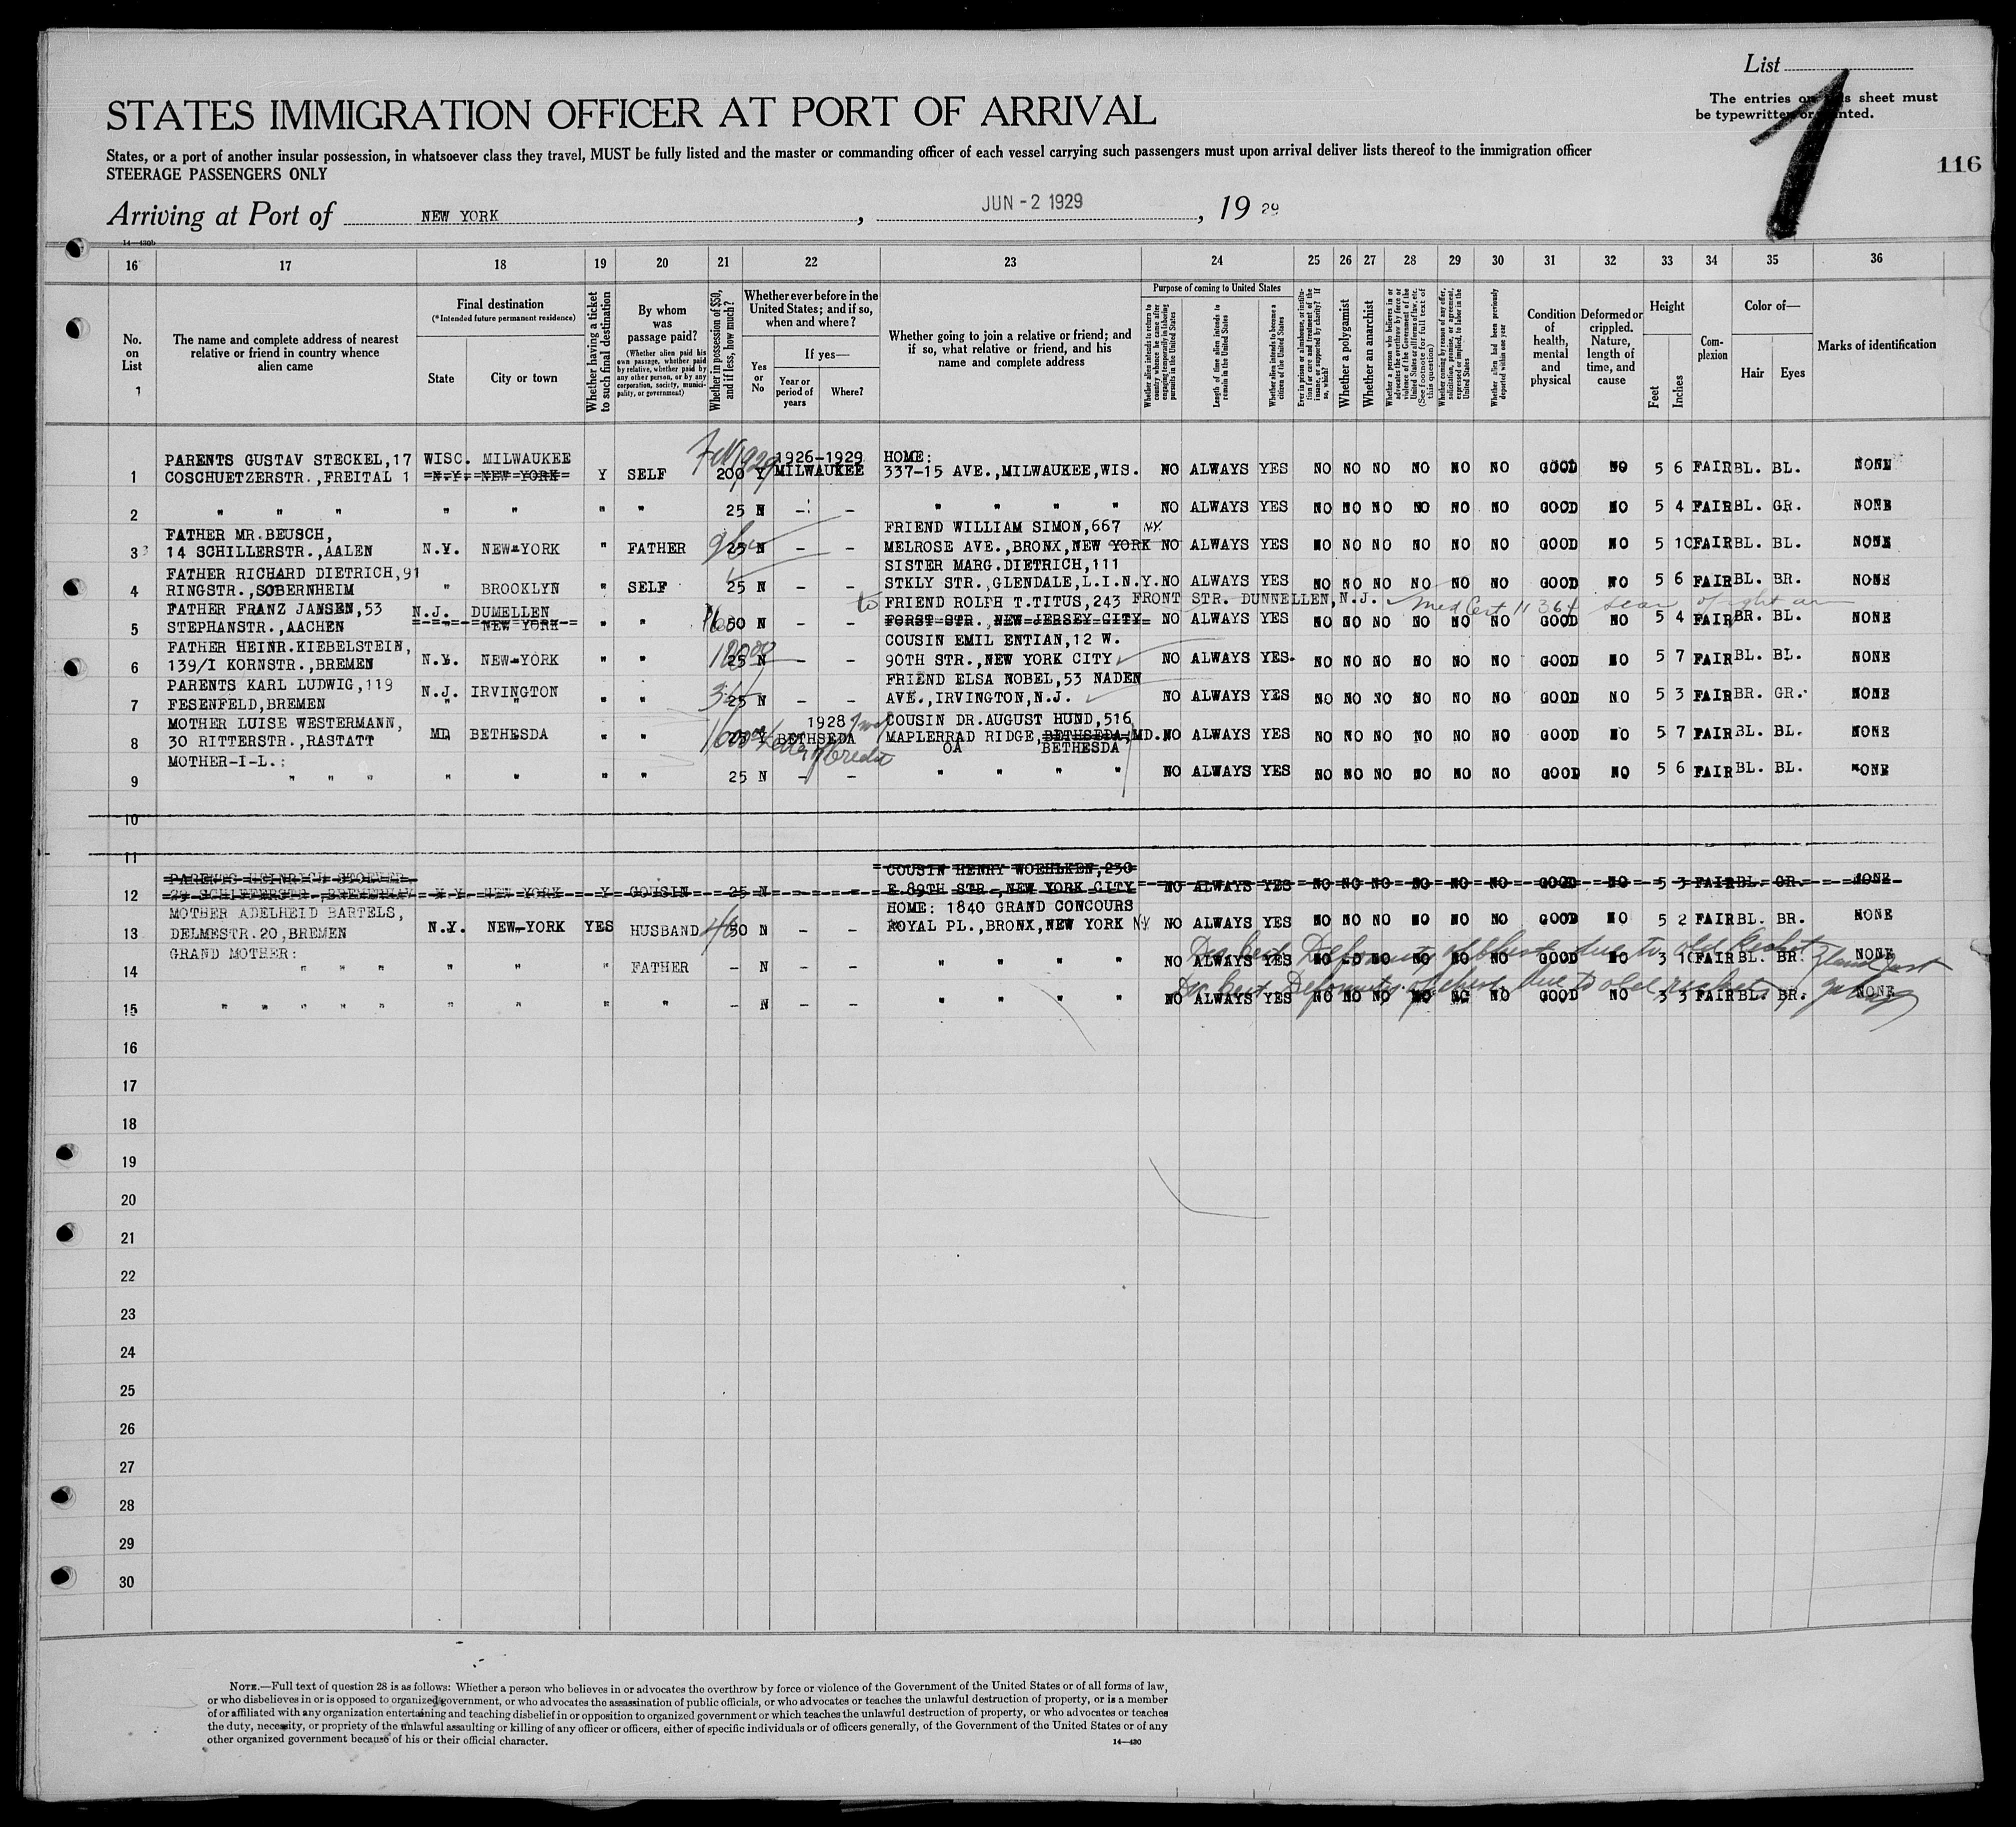 List
The entries on this sheet must
be typewritten or printed.
1
116
STATES IMMIGRATION OFFICER AT PORT OF ARRIVAL
States, or a port of another insular possession, in whatsoever class they travel, MUST be fully listed and the master or commanding officer of each vessel carrying such passengers must upon arrival deliver lists thereof to the immigration officer
STEERAGE PASSENGERS ONLY
Arriving at Port of NEW YORK, JUN -2 1929, 19 29
14—430b
16 17 18 19 20 21 22 23 24 25 26 27 28 29 30 31 32 33 34 35 36
No. on List
1
The name and complete address of nearest relative or friend in country whence alien came
Final destination
(*Intended future permanent residence)
State
City or town
Whether having a ticket to such final destination
By whom was passage paid?
(Whether alien paid his own passage, whether paid by relative, whether paid by any other person, or by any corporation, society, municipality, or government)
Whether in possession of $50, and if less, how much?
Whether ever before in the United States; and if so, when and where?
Yes or No
If yes—
Year or period of years
Where?
Whether going to join a relative or friend; and if so, what relative or friend, and his name and complete address
Purpose of coming to United States
Whether alien intends to return to country whence he came after engaging temporarily in laboring pursuits in the United States
Length of time alien intends to remain in the United States
Whether alien intends to become a citizen of the United States
Ever in prison or almshouse, or institution for care and treatment of the insane, or supported by charity? If so, which?
Whether a polygamist
Whether an anarchist
Whether a person who believes in or advocates the overthrow by force or violence of the Government of the United States or all forms of law, etc. (See footnote for full text of this question)
Whether coming by reason of any offer, solicitation, promise, or agreement, expressed or implied, to labor in the United States
Whether alien had been previously deported within one year
Condition of health, mental and physical
Deformed or crippled. Nature, length of time, and cause
Height
Feet
Inches
Complexion
Color of—
Hair
Eyes
Marks of identification
1 PARENTS GUSTAV STECKEL,17 WISC. MILWAUKEE 1926-1929 HOME:
COSCHUETZERSTR.,FREITAL 1 N.Y. NEW YORK Y SELF 200 Y MILWAUKEE 337-15 AVE.,MILWAUKEE,WIS. NO ALWAYS YES NO NO NO NO NO NO GOOD NO 5 6 FAIR BL. BL. NONE
2 " " " " " " " 25 N - - " " " " NO ALWAYS YES NO NO NO NO NO NO GOOD NO 5 4 FAIR BL. GR. NONE
FATHER MR.BEUSCH, FRIEND WILLIAM SIMON,667 N.Y.
3 14 SCHILLERSTR.,AALEN N.Y. NEW-YORK " FATHER 25 N - - MELROSE AVE.,BRONX,NEW YORK NO ALWAYS YES NO NO NO NO NO NO GOOD NO 5 10 FAIR BL. BL. NONE
FATHER RICHARD DIETRICH,91 SISTER MARG.DIETRICH,111
4 RINGSTR.,SOBERNHEIM " BROOKLYN " SELF 25 N - - STKLY STR.,GLENDALE,L.I.N.Y. NO ALWAYS YES NO NO NO NO NO NO GOOD NO 5 6 FAIR BL. BR. NONE
FATHER FRANZ JANSEN,53 N.J. DUMELLEN to FRIEND ROLPH T.TITUS,243 FRONT STR. DUNNELLEN,N.J. Med Cert 11364 scar of right
5 STEPHANSTR.,AACHEN " NEW YORK " " 50 N - - FORST STR., NEW JERSEY CITY NO ALWAYS YES NO NO NO NO NO NO GOOD NO 5 4 FAIR BR. BL. NONE
FATHER HEINR.KIEBELSTEIN, COUSIN EMIL ENTIAN,12 W.
6 139/I KORNSTR.,BREMEN N.Y. NEW-YORK " " 25 N - - 90TH STR.,NEW YORK CITY NO ALWAYS YES NO NO NO NO NO NO GOOD NO 5 7 FAIR BL. BL. NONE
PARENTS KARL LUDWIG,119 N.J. IRVINGTON FRIEND ELSA NOBEL,53 NADEN
7 FESENFELD,BREMEN " " " " 25 N - - AVE.,IRVINGTON,N.J. NO ALWAYS YES NO NO NO NO NO NO GOOD NO 5 3 FAIR BR. GR. NONE
MOTHER LUISE WESTERMANN, 1928 COUSIN DR.AUGUST HUND,516
8 30 RITTERSTR.,RASTATT MD BETHESDA " " 25 Y BETHSEDA MAPLERRAD RIDGE,BETHSEDA,MD. NO ALWAYS YES NO NO NO NO NO NO GOOD NO 5 7 FAIR BL. BL. NONE
Letter of Credit OA BETHESDA
MOTHER-I-L.:
9 " " " " " " " 25 N - - " " " " NO ALWAYS YES NO NO NO NO NO NO GOOD NO 5 6 FAIR BL. BL. NONE
10
11
COUSIN HENRY WOEHLKEN,230
12 PARENTS HEINRICH STOEVER, 29 SCHLEFERSTR.,BREMERHAV N.Y. NEW YORK Y COUSIN 25 N - - E.89TH STR.,NEW YORK CITY NO ALWAYS YES NO NO NO NO NO NO GOOD NO 5 3 FAIR BL. GR. NONE
MOTHER ADELHEID BARTELS, HOME: 1840 GRAND CONCOURS
13 DELMESTR.20,BREMEN N.Y. NEW-YORK YES HUSBAND 50 N - - ROYAL PL.,BRONX,NEW YORK N.Y. NO ALWAYS YES NO NO NO NO NO NO GOOD NO 5 2 FAIR BL. BR. NONE
GRAND MOTHER: Deformity of chest due to old
14 " " " " " " FATHER - N - - " " " " NO ALWAYS YES NO NO NO NO NO NO GOOD NO 3 10 FAIR BL. BR. NONE
Deformity of chest due to old
15 " " " " " " " " - N - - " " " " NO ALWAYS YES NO NO NO NO NO NO GOOD NO 3 3 FAIR BL. BR. NONE
16
17
18
19
20
21
22
23
24
25
26
27
28
29
30
NOTE.—Full text of question 28 is as follows: Whether a person who believes in or advocates the overthrow by force or violence of the Government of the United States or of all forms of law,
or who disbelieves in or is opposed to organized government, or who advocates the assassination of public officials, or who advocates or teaches the unlawful destruction of property, or is a member
of or affiliated with any organization entertaining and teaching disbelief in or opposition to organized government or which teaches the unlawful destruction of property, or who advocates or teaches
the duty, necessity, or propriety of the unlawful assaulting or killing of any officer or officers, either of specific individuals or of officers generally, of the Government of the United States or of any
other organized government because of his or their official character.
14—430